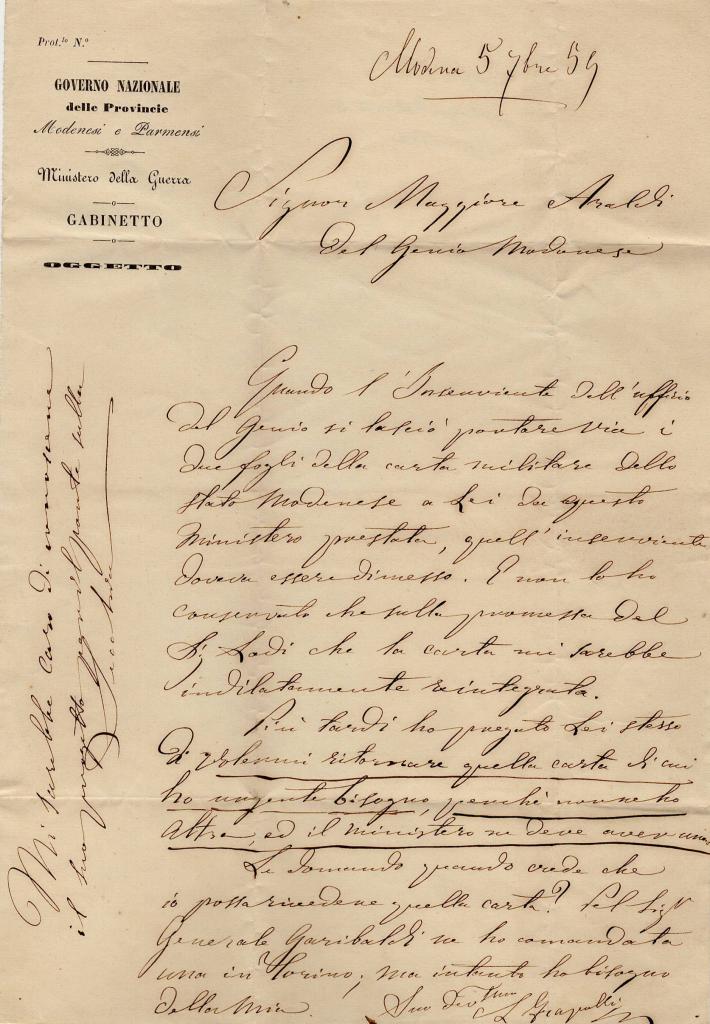 Prot.lo N.º
GOVERNO NAZIONALE
delle Provincie
Modenesi e Parmensi
Ministero della Guerra
GABINETTO
OGGETTO
Modena 5 7bre 59
Signor Maggiore Araldi
del Genio Modonese
Quando l'Inserviente dell'uffizio
del Genio si lasciò portare via i
due fogli della carta militare dello
stato Modenese a Lei da questo
Ministero prestata, quell'inserviente
doveva essere dimesso. E non lo ho
conservato che sulla promessa del
Sig Lodi che la carta mi sarebbe
indilatamente reintegrata.
Più tardi ho pregato Lei stesso
di volermi ritornare quella carta di cui
ho urgente bisogno, perchè non ne ho
altra, ed il ministero ne deve aver una.
Le domando quando crede che
io possa rivedere quella carta? Pel Sigr
Generale Garibaldi ne ho comandata
una in Torino; ma intanto ho bisogno
della mia.
Suo
Mi sarebbe caro di conoscere
il suo progetto pel ponte sulla
Secchia